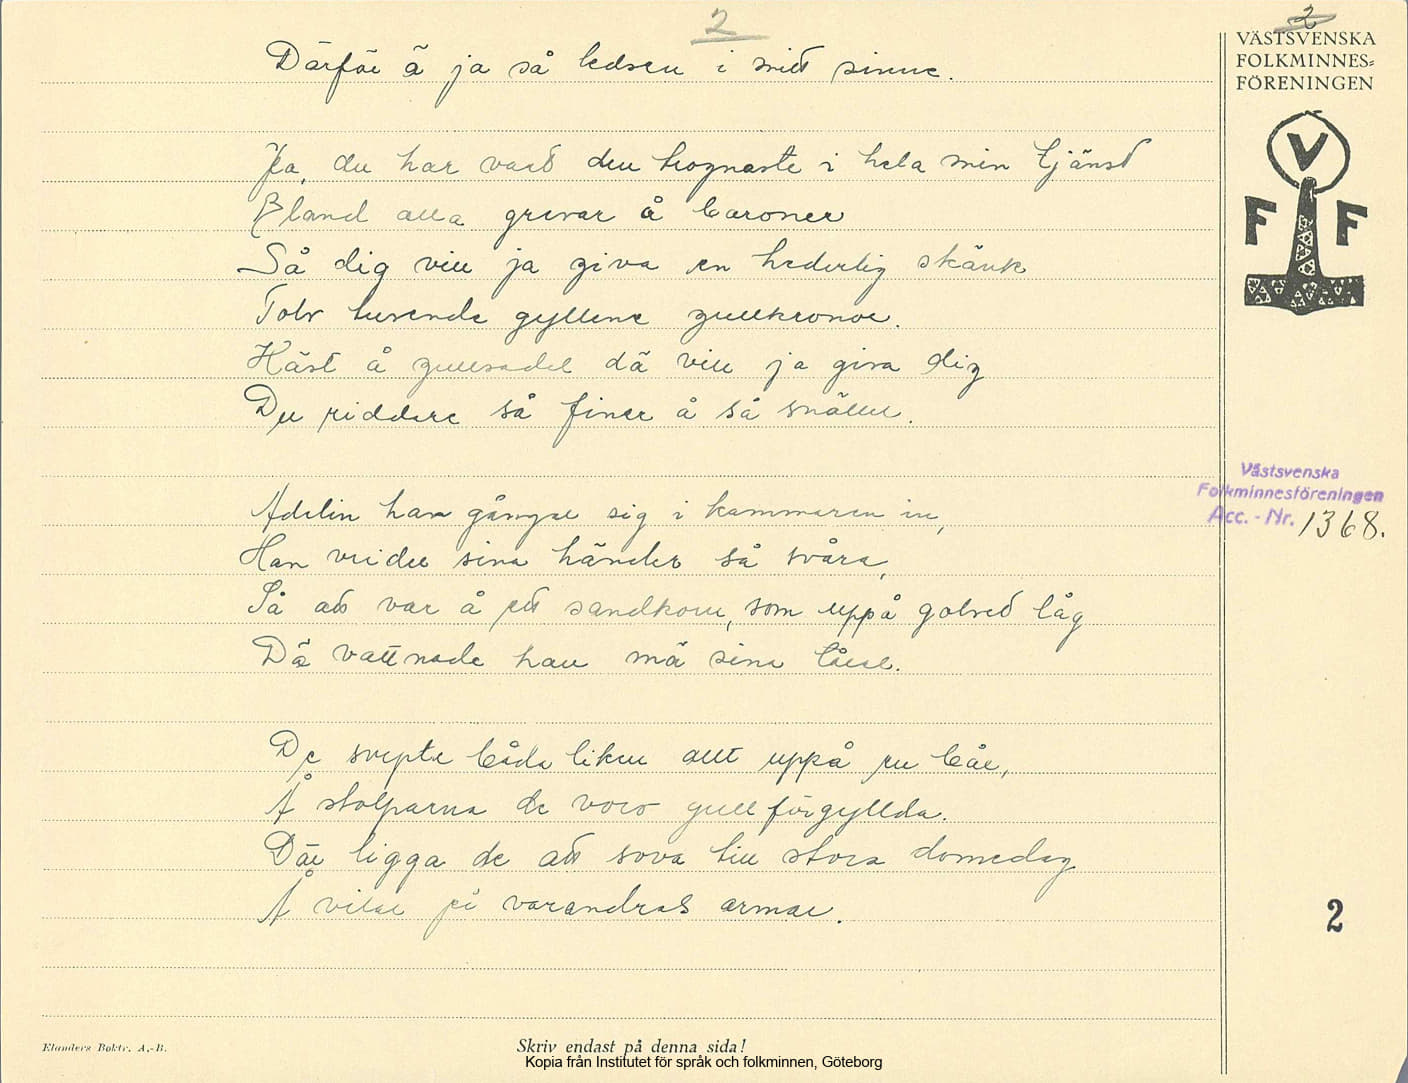 2
2
VÄSTSVENSKA
FOLKMINNES=
FÖRENINGEN
V
F F
Därför ä ja så ledsen i mitt sinne.
Ja, du har vart den trognaste i hela min tjänst
Bland alla grevar å baroner
Så dig vill ja giva en hederlig skänk
Tolv tusende gyllene gullkronor.
Häst å gullsadel dä vill ja giva dig
Du riddare så finer å så snäller.
Västsvenska
Folkminnesföreningen
Acc. - Nr. 1368.
Adelin han gångar sig i kammaren in,
Han vrider sina händer så svåra,
Så att var å ett sandkorn, som uppå golvet låg
Dä vattnade han mä sina tårar.
De svepte båda liken allt uppå en bår,
Å stolparna de voro gullförgyllda.
Där ligga de att sova till stora domedag
Å vilar på varandras armar.
2
Elanders Boktr. A.-B.
Skriv endast på denna sida!
Kopia från Institutet för språk och folkminnen, Göteborg